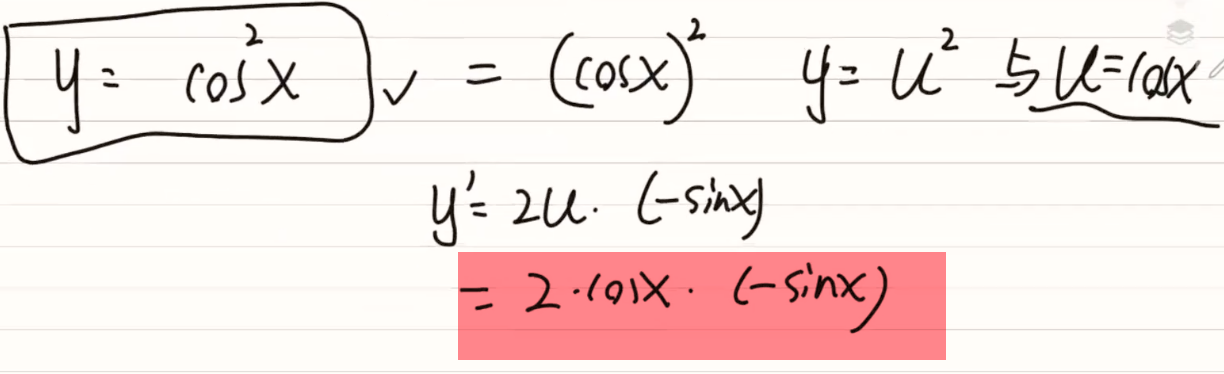 y = cos²x ✓ = (cosx)² y = u² 与 u = cosx
y' = 2u · (-sinx)
= 2 · cosx · (-sinx)